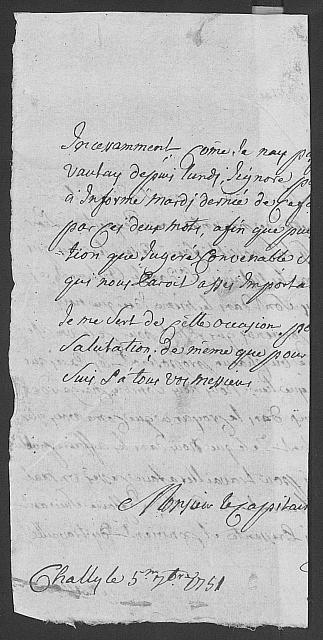 Incessamment, come Je nay p
vautay depuis lundi, Jeignore p
à Informé mardi dernié de ce
par ces deux mots, afin que pui
tion que Jugeré Convenable
qui nous Paroit asses Importa
Je me sert de cette occasion po
Salutation, de même que pour
suis P à tous vos messieurs
Monsieur le Capitai
Chally le 5.m 7bre 1751